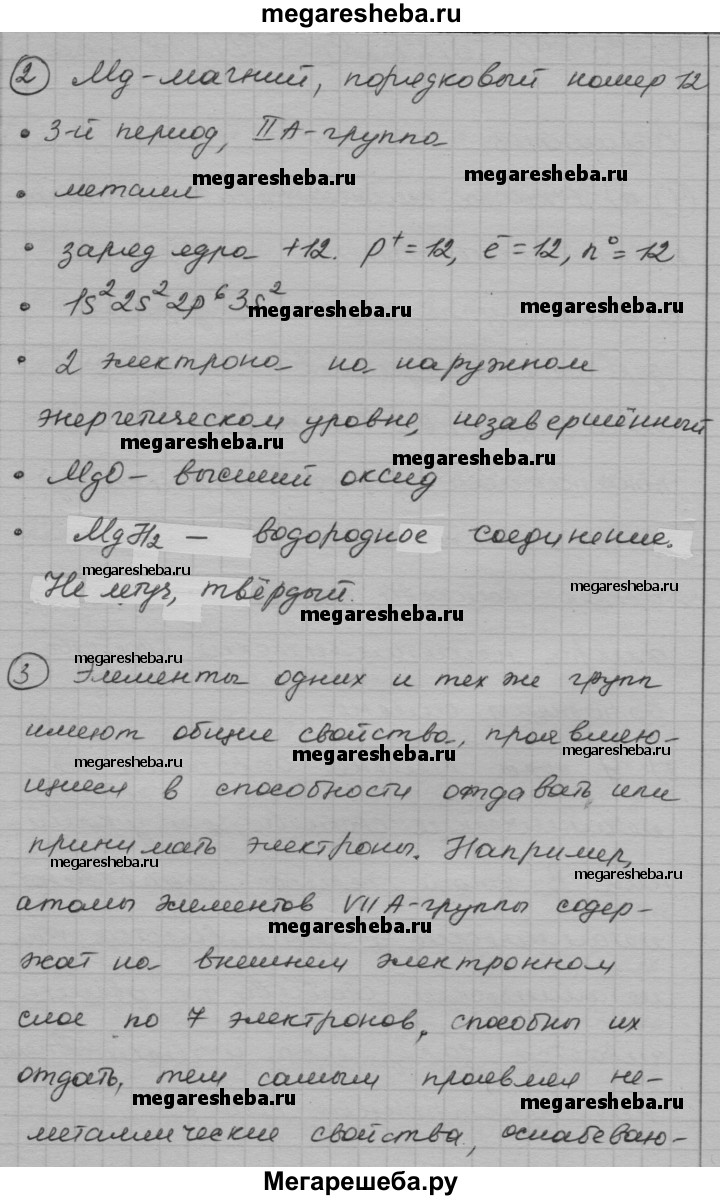 megaresheba.ru
2 Mg - магний, порядковый номер 12
• 3-й период, II А-группа
megaresheba.ru megaresheba.ru
• металл
• заряд ядра +12. p⁺ = 12, e⁻ = 12, n⁰ = 12
• 1s² 2s² 2p⁶ 3s²
megaresheba.ru megaresheba.ru
• 2 электрона на наружном
энергетическом уровне, незавершённый
megaresheba.ru megaresheba.ru
• MgO - высший оксид
• MgH₂ — водородное соединение.
megaresheba.ru megaresheba.ru
Не летуч, твёрдый.
megaresheba.ru
megaresheba.ru
3 Элементы одних и тех же групп
имеют общие свойства, проявляю-
megaresheba.ru megaresheba.ru
megaresheba.ru
щиеся в способности отдавать или
принимать электроны. Например,
megaresheba.ru megaresheba.ru
атомы элементов VII А-группы содер-
megaresheba.ru megaresheba.ru
жат на внешнем электронном
слое по 7 электронов, способны их
отдать, тем самым проявляя не-
megaresheba.ru megaresheba.ru
металлические свойства, ослабеваю-
Мегарешеба.ру